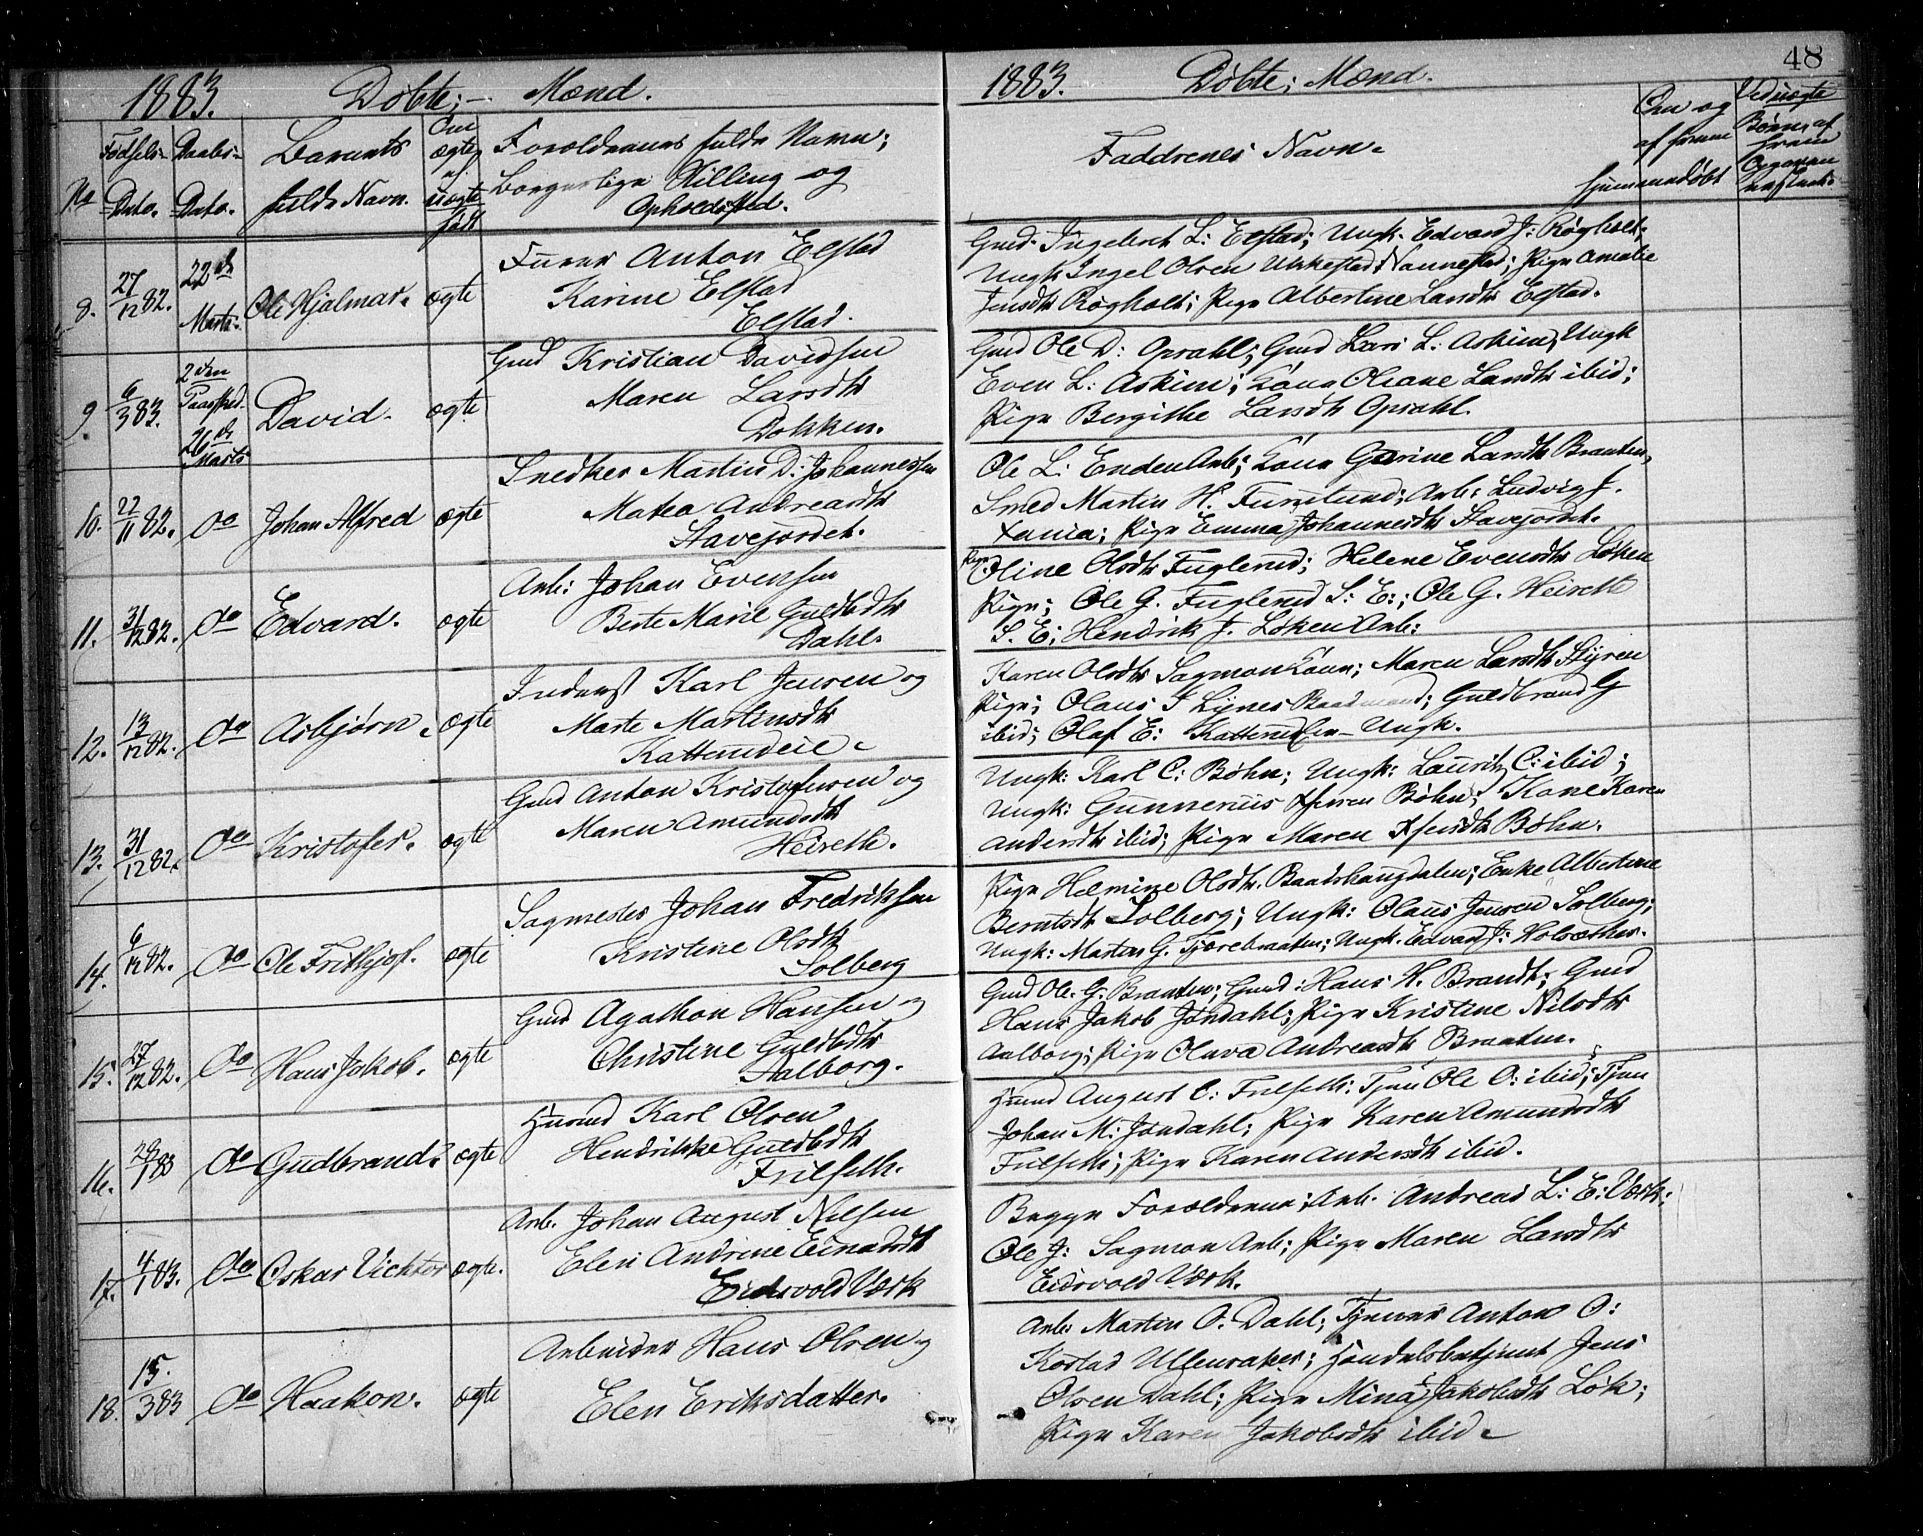 48
1883. Döbte; Mænd.
1883. Döbte; Mænd.
No
Födsels-
Dato.
Daabs-
Dato.
Barnets
fulde Navn.
Om
ægte
uægte
født
Forældrenes fulde Navn;
borgerlige Stilling og
Opholdssted.
Faddrenes Navn.
Om og
af hvem
hjemmedøbt
Ved uægte
Børn, af
hvem
8. 27/12 82. 22de Marts. Ole Hjalmar. ægte
Anton Elstad
Karine Elstad
Elstad.
Gmd. Ingebret L: Elstad; Ungk. Edvard J: Røgholt;
Ungk Ingel Olsen Nannestad; Pige Amalie
Jensdtr Røgholt; Pige Albertine Larsdtr Elstad.
9. 6/3 83. 2den Paasked. 26de Marts David. ægte
Gmd Kristian Davidsen
Maren Larsdtr
Dokken.
Gmd Ole D: Opsahl; Gmd Lars L. Askim; Ungk
Even L: Askim; Kone Oleane Larsdtr ibid;
Pige Bergithe Larsdtr Opsahl.
10. 22/11 82. do Johan Alfred ægte
Snedker Martin D: Johannessen
Mathea Andreasdtr
Stavejordet.
Ole L: Enden Arb; Kone Gorine Larsdtr Braaten,
Smed Martin H. Furulund; Arb: Ludvig J.
Xania; Pige Emma Johannesdtr Stavejordet.
11. 31/12 82. do Edvard. ægte
Arb: Johan Evensen
Berte Marie Guldbdtr
Dahl.
Pige Oline Olsdtr Fuglerud; Helene Evensdtr Løken
Pige; Ole G. Fuglerud S: E:; Ole G. Heireth
S. E; Hendrik J. Løken Arb:
12. 13/12 82. do Asbjørn. ægte
Inderst Karl Jensen og
Marte Martinsdtr
Kattendeie.
Karen Olsdtr Sagmon Kone; Maren Larsdtr Styren
Pige; Olaus S Lynes Baadmand; Guldbrand G
ibid; Olaf E: Ungk.
13. 31/12 82. do Kristofer. ægte
Gmd Anton Kristofersen og
Maren Amundsdtr
Heireth.
Ungk: Karl C: Bøhn; Ungk: Lauritz C: ibid;
Ungk: Gunnerius Bøhn; Kone Karen
Andersdtr ibid; Pige Maren Bøhn.
14. 6/12 82. do Ole Frithjof. ægte
Sagmester Johan Fredriksen
Kristine Olsdtr
Solberg
Pige Helmine Olsdtr. Baadshaugdalen; Enke Albertine
Berntsdtr Solberg; Ungk: Olaus Jensen Solberg;
Ungk: Martin G. Tjærebraaten; Ungk. Edvard J: Holsæther.
15. 27/12 82. do Hans Jakob. ægte
Gmd Agathon Hansen og
Christine Guldbdtr
Aalborg.
Gmd Ole. G. Braaten; Gmd: Hans H. Brandt; Gmd
Hans Jakob Jøndahl; Pige Kristine Nilsdtr
Aalborg; Pige Olava Andreasdtr Braaten.
16. 29/1 83 do Gudbrand. ægte
Husmd Karl Olsen
Hendrikke Guldbdtr
Frilseth.
Husmd August C: Frilseth; Tjen Ole O: ibid; Tjen
Johan M: Jøndahl; Pige Karen Amundsdtr
Frilseth; Pige Karen Andersdtr ibid.
17. 4/1 83. do Oskar Vichtor ægte.
Arb. Johan August Nilsen
Elen Andrine Einarsdtr
Eidsvold Værk
Begge Forældrene; Arb. Andreas L: E: Værk.
Ole J: Sagmon Arb; Pige Maren Larsdtr
Eidsvold Værk.
18. 15./3 83 do Haakon. ægte
Arbeider Hans Olsen og
Elen Eriksdatter.
Arb. Martin O. Dahl; Tjener Anton O:
Kostad Ullensaker; Handelsbetjent Jens
Olsen Dahl; Pige Mina Jakobsdtr Løk;
Pige Karen Jakobsdtr ibid.